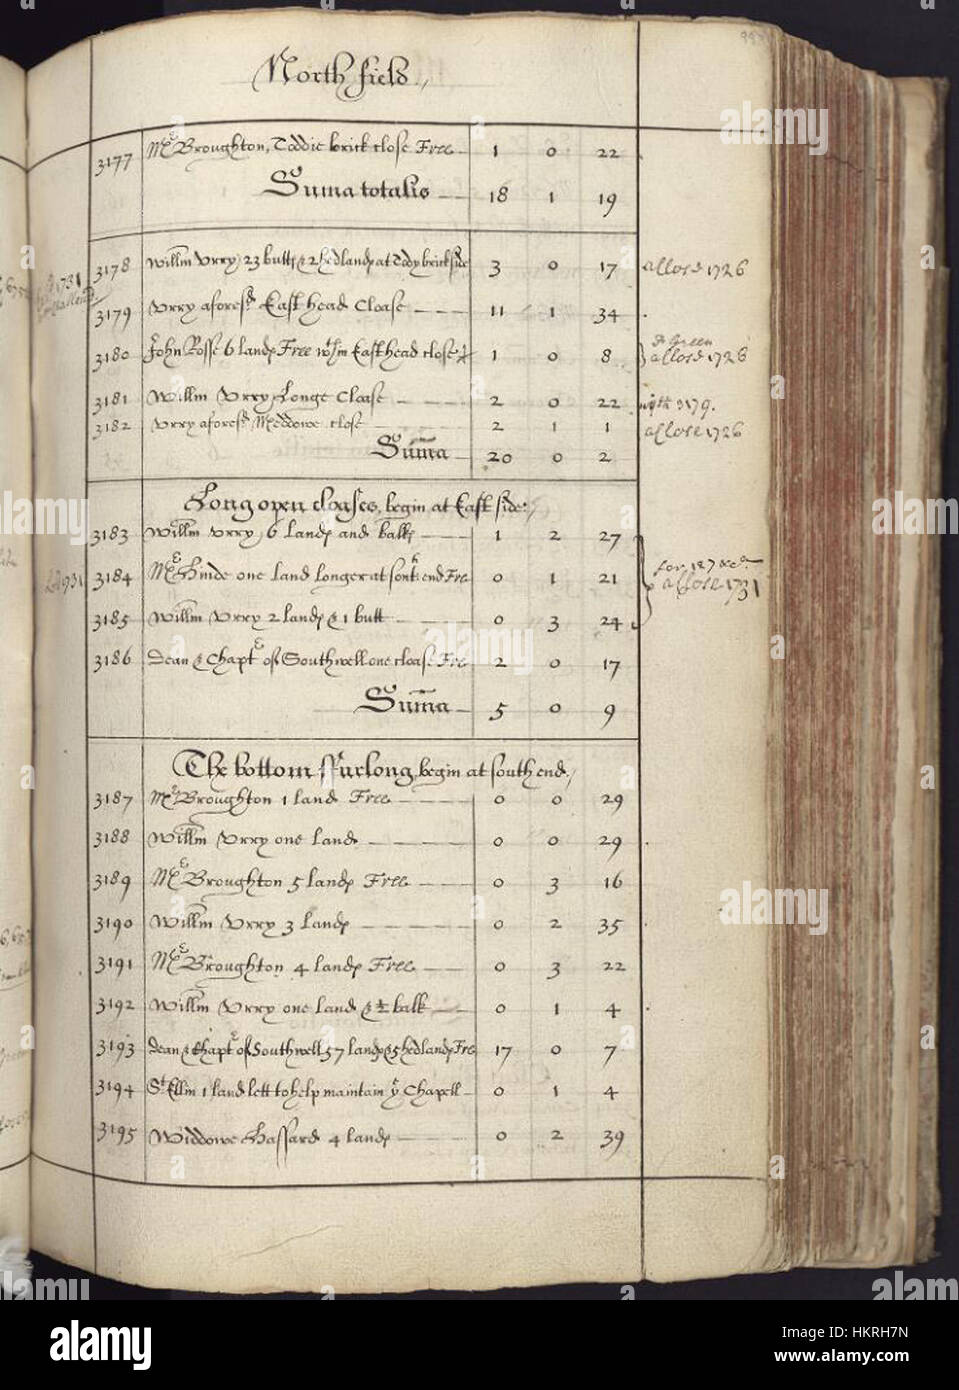 North field
3177 Mr Broughton, Toddie brick close Free 1 0 22
Suma totalis 18 1 19
3178 Willm Urry 23 butts & 2 hedlands at Tody brick side 3 0 17 a close 1726
3179 Urry aforesd East head Cloase 11 1 34
3180 John Rosse 6 lands Free wthin East head close 1 0 8 Green a close 1726
3181 Willm Urry Longe Cloase 2 0 22 with 3179.
3182 Urry aforesd Meddowe close 2 1 1 a close 1726
Suma 20 0 2
Long open cloases, begin at East side:
3183 Willm Urry 6 lands and balks 1 2 27
3184 Mr Hinde one land longer at south end Fre 0 1 21 a close 1731
3185 Willm Urry 2 lands & 1 butt 0 3 24
3186 Dean & Chaptr of Southwell one cloase Fre 2 0 17
Suma 5 0 9
The bottom ffurlong begin at south end,
3187 Mr Broughton 1 land Free 0 0 29
3188 Willm Urry one land 0 0 29
3189 Mr Broughton 5 lands Free 0 3 16
3190 Willm Urry 3 lands 0 2 35
3191 Mr Broughton 4 lands Free 0 3 22
3192 Willm Urry one land & ½ balk 0 1 4
3193 Dean & Chaptr of Southwell 57 lands & 5 hedlands Fre 17 0 7
3194 St Ellin 1 land lett to help maintain ye Chapell 0 1 4
3195 Widdowe Hassard 4 lands 0 2 39
alamy
Image ID: HKRH7N
www.alamy.com